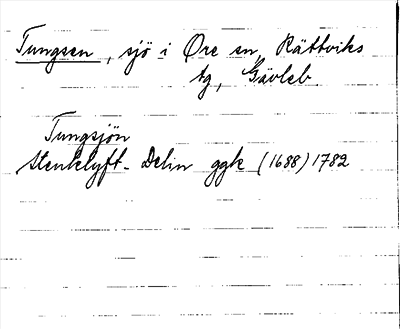 Tungsen, sjö i Ore sn, Rättviks
tg, Gävleb
Tungsjön
Stenklyft - Delin ggk (1688) 1782